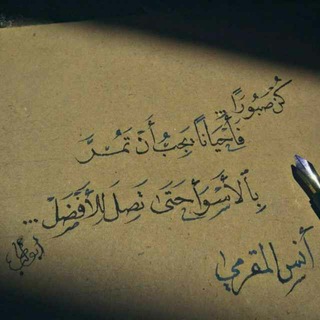 كُنْ صَبُورًا..
فَأَحْيَانًا يَجِبُ أَنْ تَمُرَّ
بِالأَسْوَأِ حَتَّى تَصِلَ لِلأَفْضَلْ...
أنس المقرمي